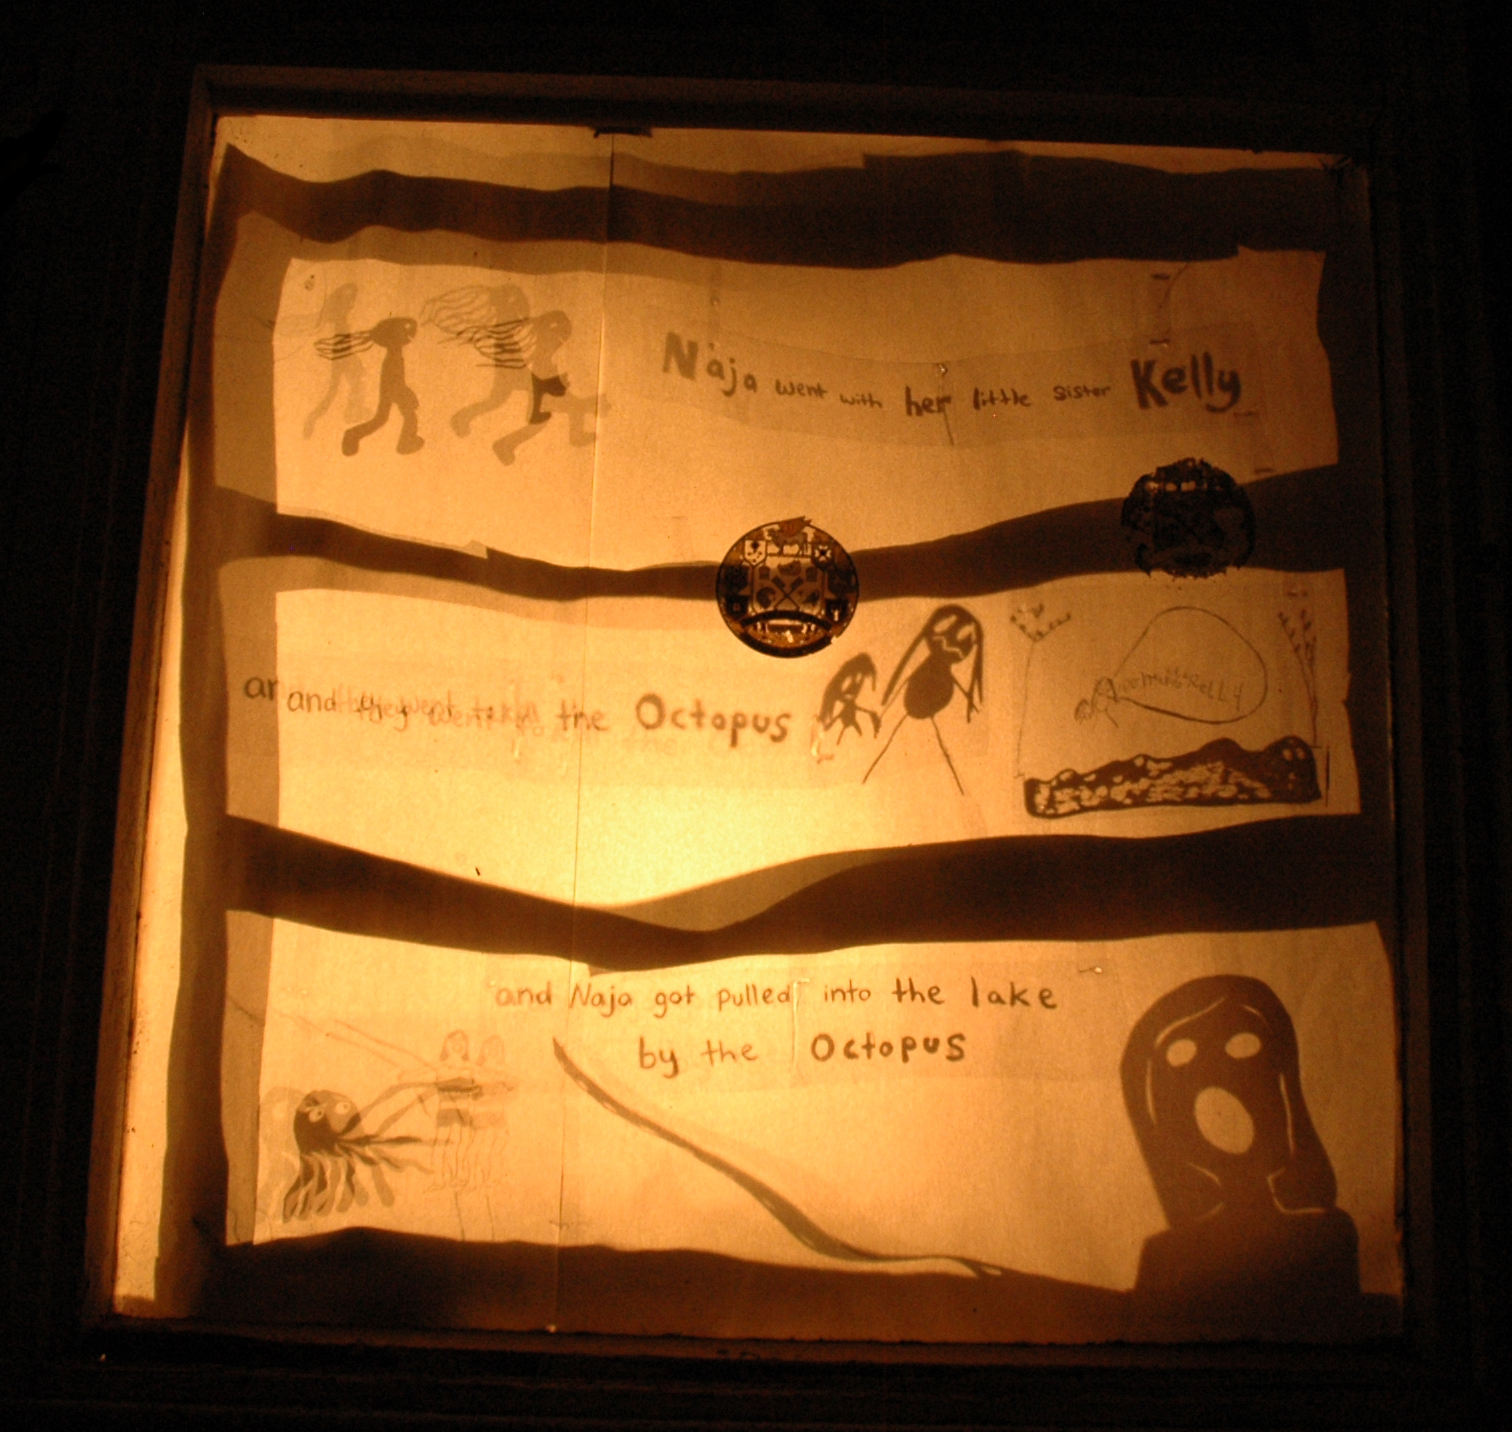 Naja went with her little sister Kelly
and they went to the Octopus
and Naja got pulled into the lake
by the Octopus